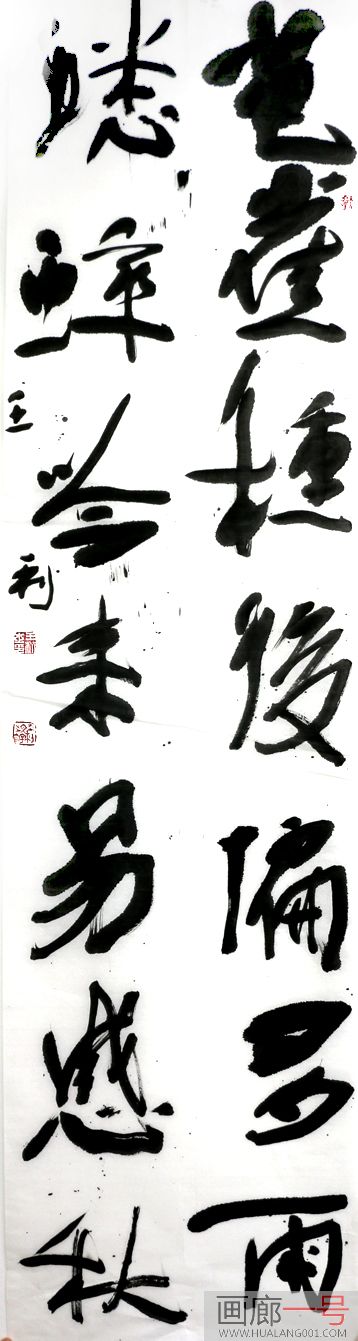 芭蕉種後偏多雨
蟋蟀吟来易感秋
王利
画廊一号
WWW.HUALANG001.COM